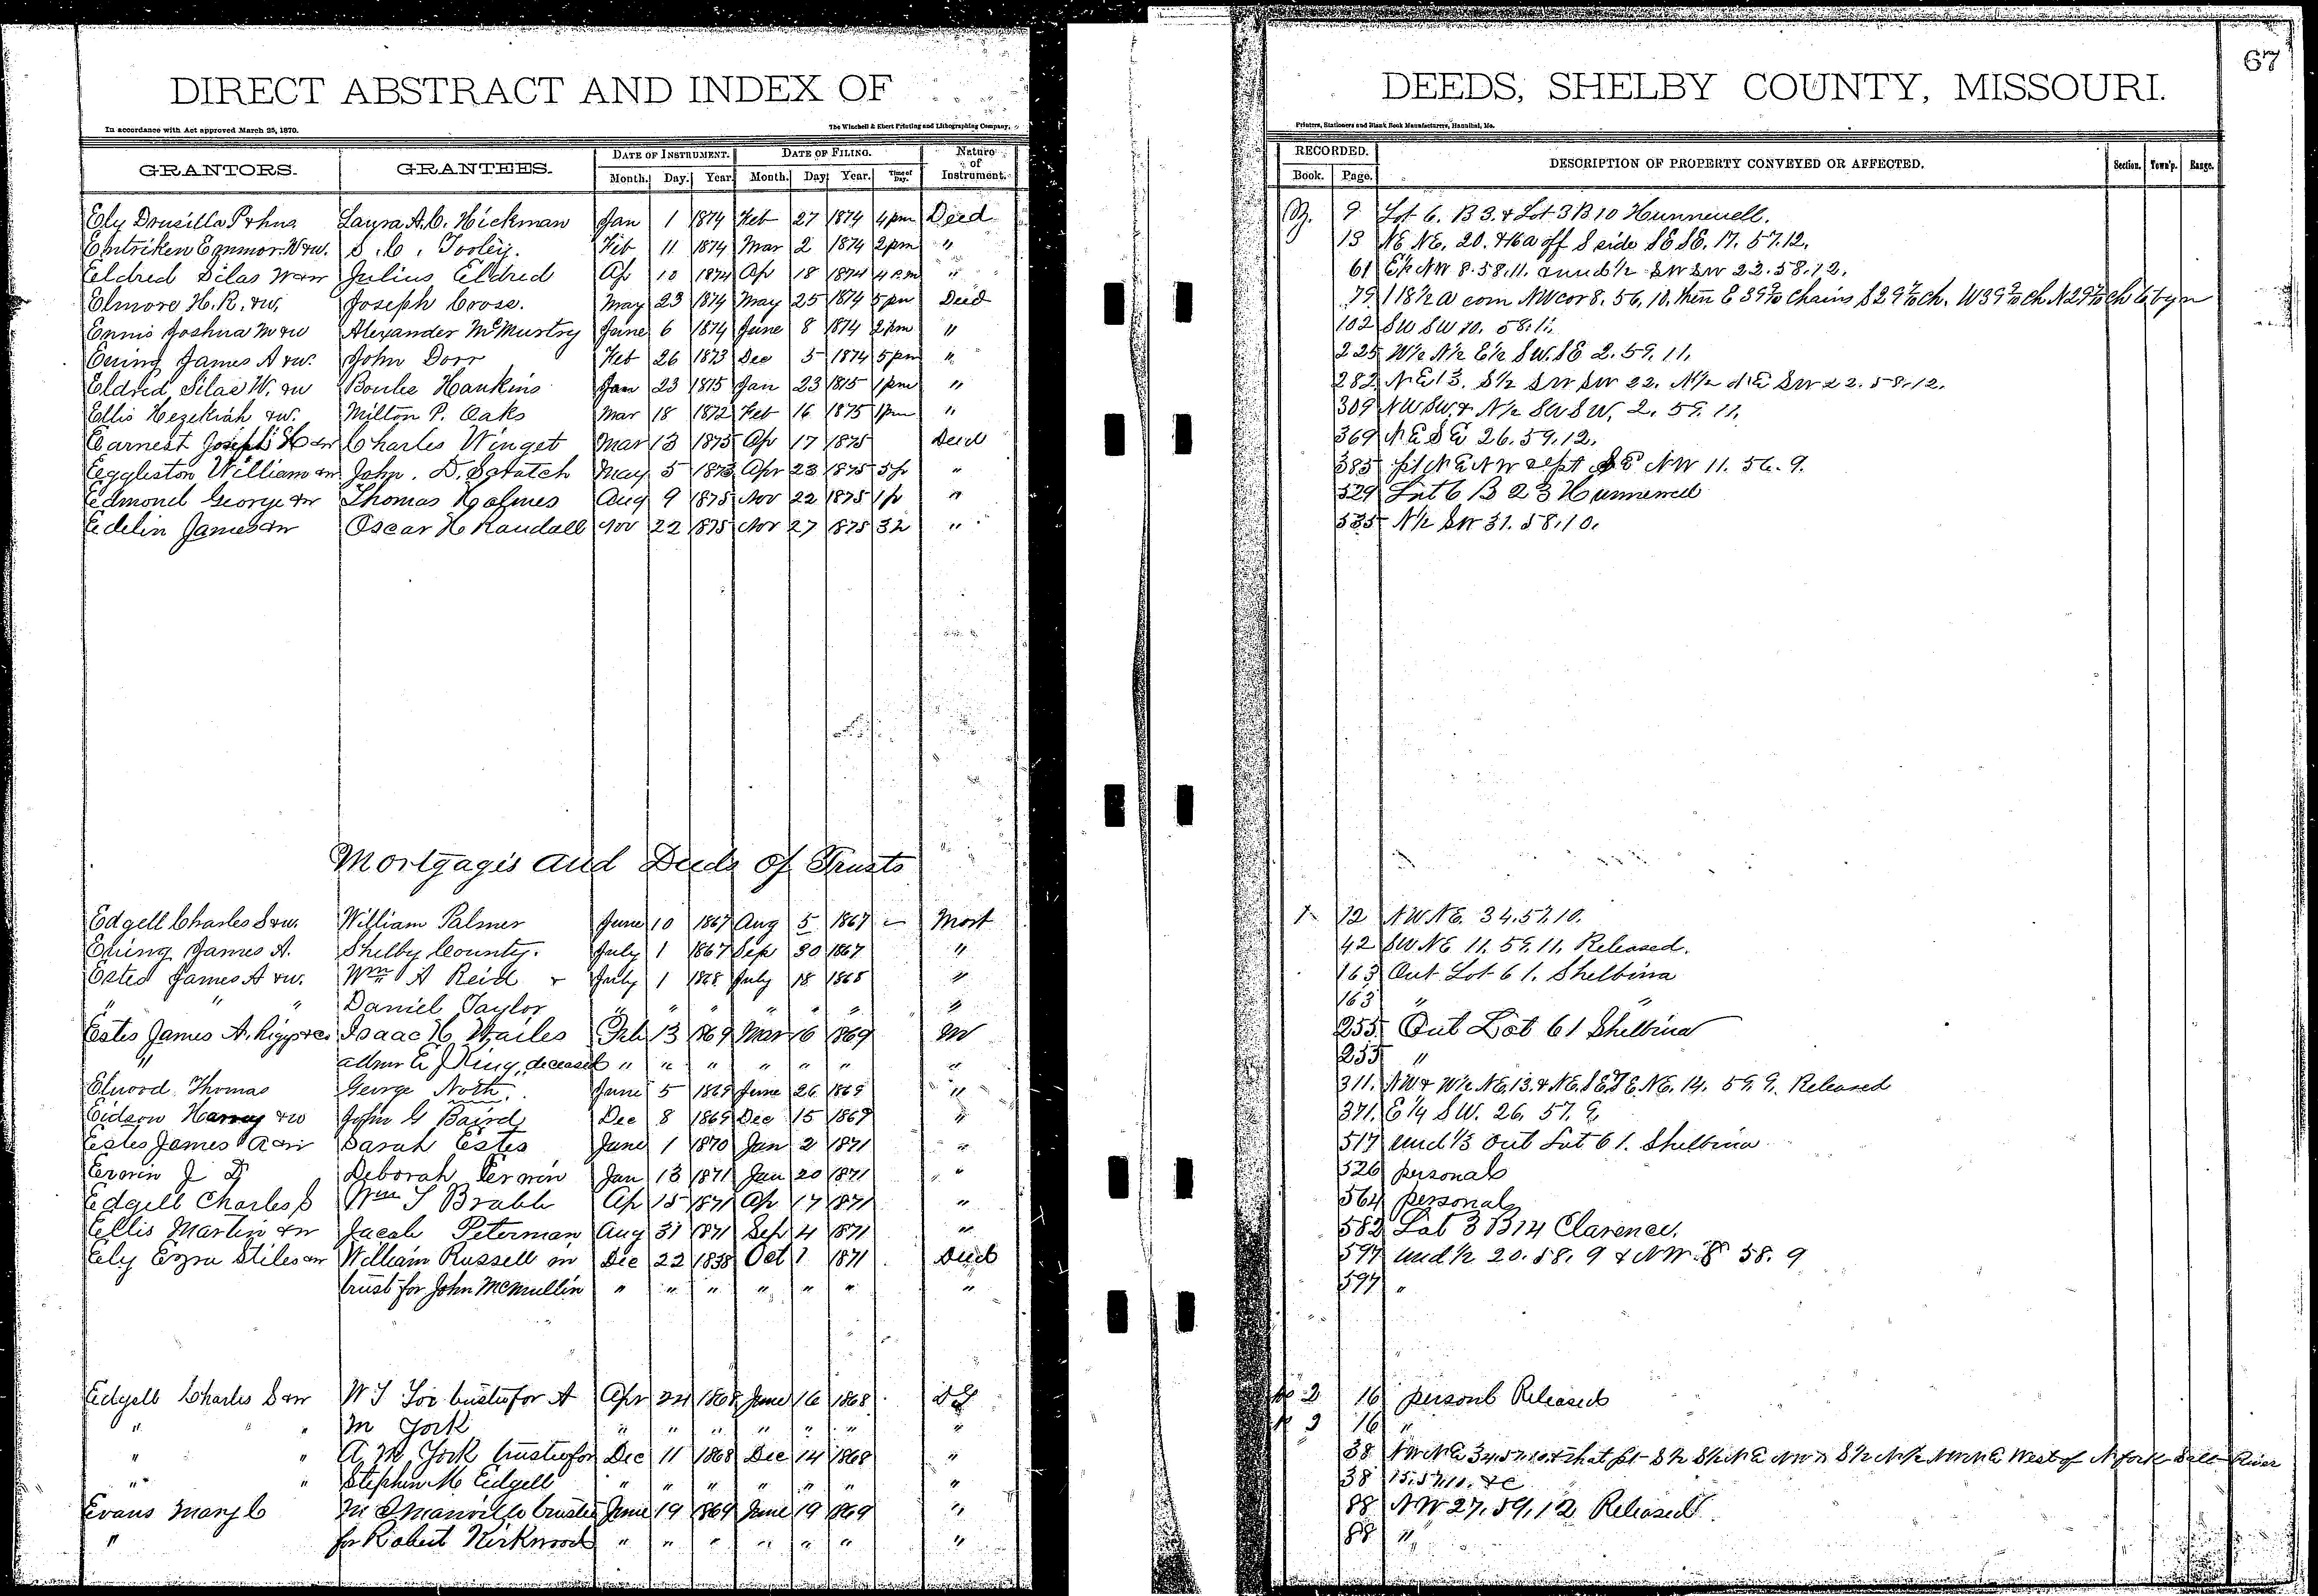 67
DIRECT ABSTRACT AND INDEX OF DEEDS, SHELBY COUNTY, MISSOURI.
In accordance with Act approved March 25, 1870. The Winchell & Ebert Printing and Lithographing Company, Printers, Stationers and Blank Book Manufacturers, Hannibal, Mo.
GRANTORS. GRANTEES. DATE OF INSTRUMENT. DATE OF FILING. Nature of Instrument. RECORDED. DESCRIPTION OF PROPERTY CONVEYED OR AFFECTED. Section. Town'p. Range.
Month. Day. Year. Month. Day Year. Time of Day. Book. Page.
Ely Drusilla P & hus Laura A. C. Hickman Jan 1 1874 Feb 27 1874 4pm Deed 9 Lot 6. B 3. & Lot 3 B 10 Hunnewell.
Entriken Emmor W & w. S. C. Tooley. Feb 11 1874 Mar 2 1874 2pm " 13 NE NE. 20. & 16 a off S side SE SE. 17. 57.12.
Eldred Silas W & w Julius Eldred Ap 10 1874 Ap 18 1874 4 P.m " 61 E½ NW 8.58.11. und ½ SW SW 22.58.12.
Elmore H. R. & w. Joseph Coose. May 23 1874 May 25 1874 5pm Deed 79 118½ a com NW cor 8. 56, 10. then E 39 2/10 chains S 29 7/10 ch. W 39 2/10 ch N 29 7/10 ch to bgn
Ennis Joshua M & w Alexander McMurtry June 6 1874 June 8 1874 2pm " 102 SW SW 10. 58.11.
Ewing James A & w. John Dorr Feb 26 1873 Dec 5 1874 5pm " 225 W½ N½ E½ SW. SE 2. 59. 11.
Eldred Silas W. & w Boulie Hankins Jan 23 1875 Jan 23 1875 1pm " 282 NE 13. S½ SW SW 22. N½ NE SW 22. 58.12.
Ellis Hezekiah & w. Milton P. Oaks Mar 18 1872 Feb 16 1875 1pm " 309 NW SW. & N½ SW SW, 2. 59. 11.
Earnest Joseph H & w Charles Winget Mar 13 1875 Ap 17 1875 Deed 369 NE SE 26. 59. 12.
Eggleston William & w John. D. Scratch May 5 1873 Apr 23 1875 5p " 385 pt NE NW SE NW 11. 56. 9.
Edmond George & w Thomas Holmes Aug 9 1875 Nov 22 1875 1p " 529 Lot 6 B 23 Hunnewell
Edelin James & w Oscar H Randall Nov 22 1875 Nov 27 1875 " 535 N½ SW 31. 58. 10.
Mortgagis and Deeds of Trusts
Edgell Charles S & w. William Palmer June 10 1867 Aug 5 1867 Mort 1 12 NW NE. 34. 57. 10.
Ewing James A. Shelby County. July 1 1867 Sep 30 1867 " 42 SW NE 11. 59. 11. Released.
Estes James A & w. Wm A Reid & July 1 1868 July 18 1868 " 163 Out Lot 61. Shelbina
" " " Daniel Taylor " " " " " " " 163 " "
Estes James A. Isaac H. Wailes Feb 13 1869 Mar 16 1869 M 255 Out Lot 61 Shelbina
" admr E J King, deceased " " " " " " " 255 "
Elwood Thomas George North. June 5 1869 June 26 1869 " 311. NW & W½ NE. 13. & NE. SE & E NE. 14. 59. 9. Released
Eidson Harvey & w John G Baird Dec 8 1869 Dec 15 1869 " 371. E ¼ SW. 26. 57. 9.
Estes James A & w Sarah Estes June 1 1870 Jan 2 1871 " 517 und ⅓ Out Lot 61. Shelbina
Erwin J D Deborah Erwin Jan 13 1871 Jan 20 1871 " 526 personals
Edgell Charles S Wm S Brabb Ap 15 1871 Ap 17 1871 " 564 personals
Ellis Martin & w Jacob Peterman Aug 31 1871 Sep 4 1871 " 582 Lot 3 B 14 Clarence.
Ely Ezra Stiles & w William Russell in Dec 22 1838 Oct 1 1871 Deed 597 und ½ 20. 58. 9 & NW 8 58. 9
trust for John McMullin " " " " " " " 597 "
Edgell Charles S & w W S trustee for A Apr 24 1868 June 16 1868 2 16 personl Released
" " M York " " " " " " " 16 "
" " A. M. York trustee for Dec 11 1868 Dec 14 1868 " 38 NW NE 34.57.10 & that pt S½ NE NW & S½ N½ NW NE West of N fork Salt River
" " Stephen M Edgell " " " " " " " 38 15. 57. 10. &c
Evans Mary C Manville trustee June 19 1869 June 19 1869 " 88 NW 27. 59. 12 Released
" for Robert Kirkwood " " " " " " " 88 "